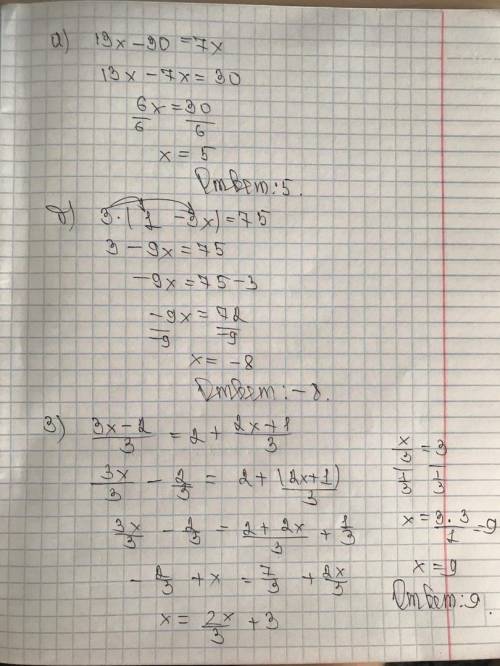 а) 13x − 30 = 7x
13x − 7x = 30
6x/6 = 30/6
x = 5
Ответ: 5.
б) 3·(1 − 3x) = 75
3 − 9x = 75
−9x = 75 − 3
−9x/−9 = 72/−9
x = −8
Ответ: −8.
3) (3x − 2)/3 = 2 + (2x + 1)/3
3x/3 − 2/3 = 2 + (2x + 1)/3
3x/3 − 2/3 = (2 + 2x)/3 + 1/3
−2/3 + x = 7/3 + 2x/3
x = 2x/3 + 3
x/3 = 3
1/3 1/3
x = 3·3/1 = 9
x = 9
Ответ: 9.